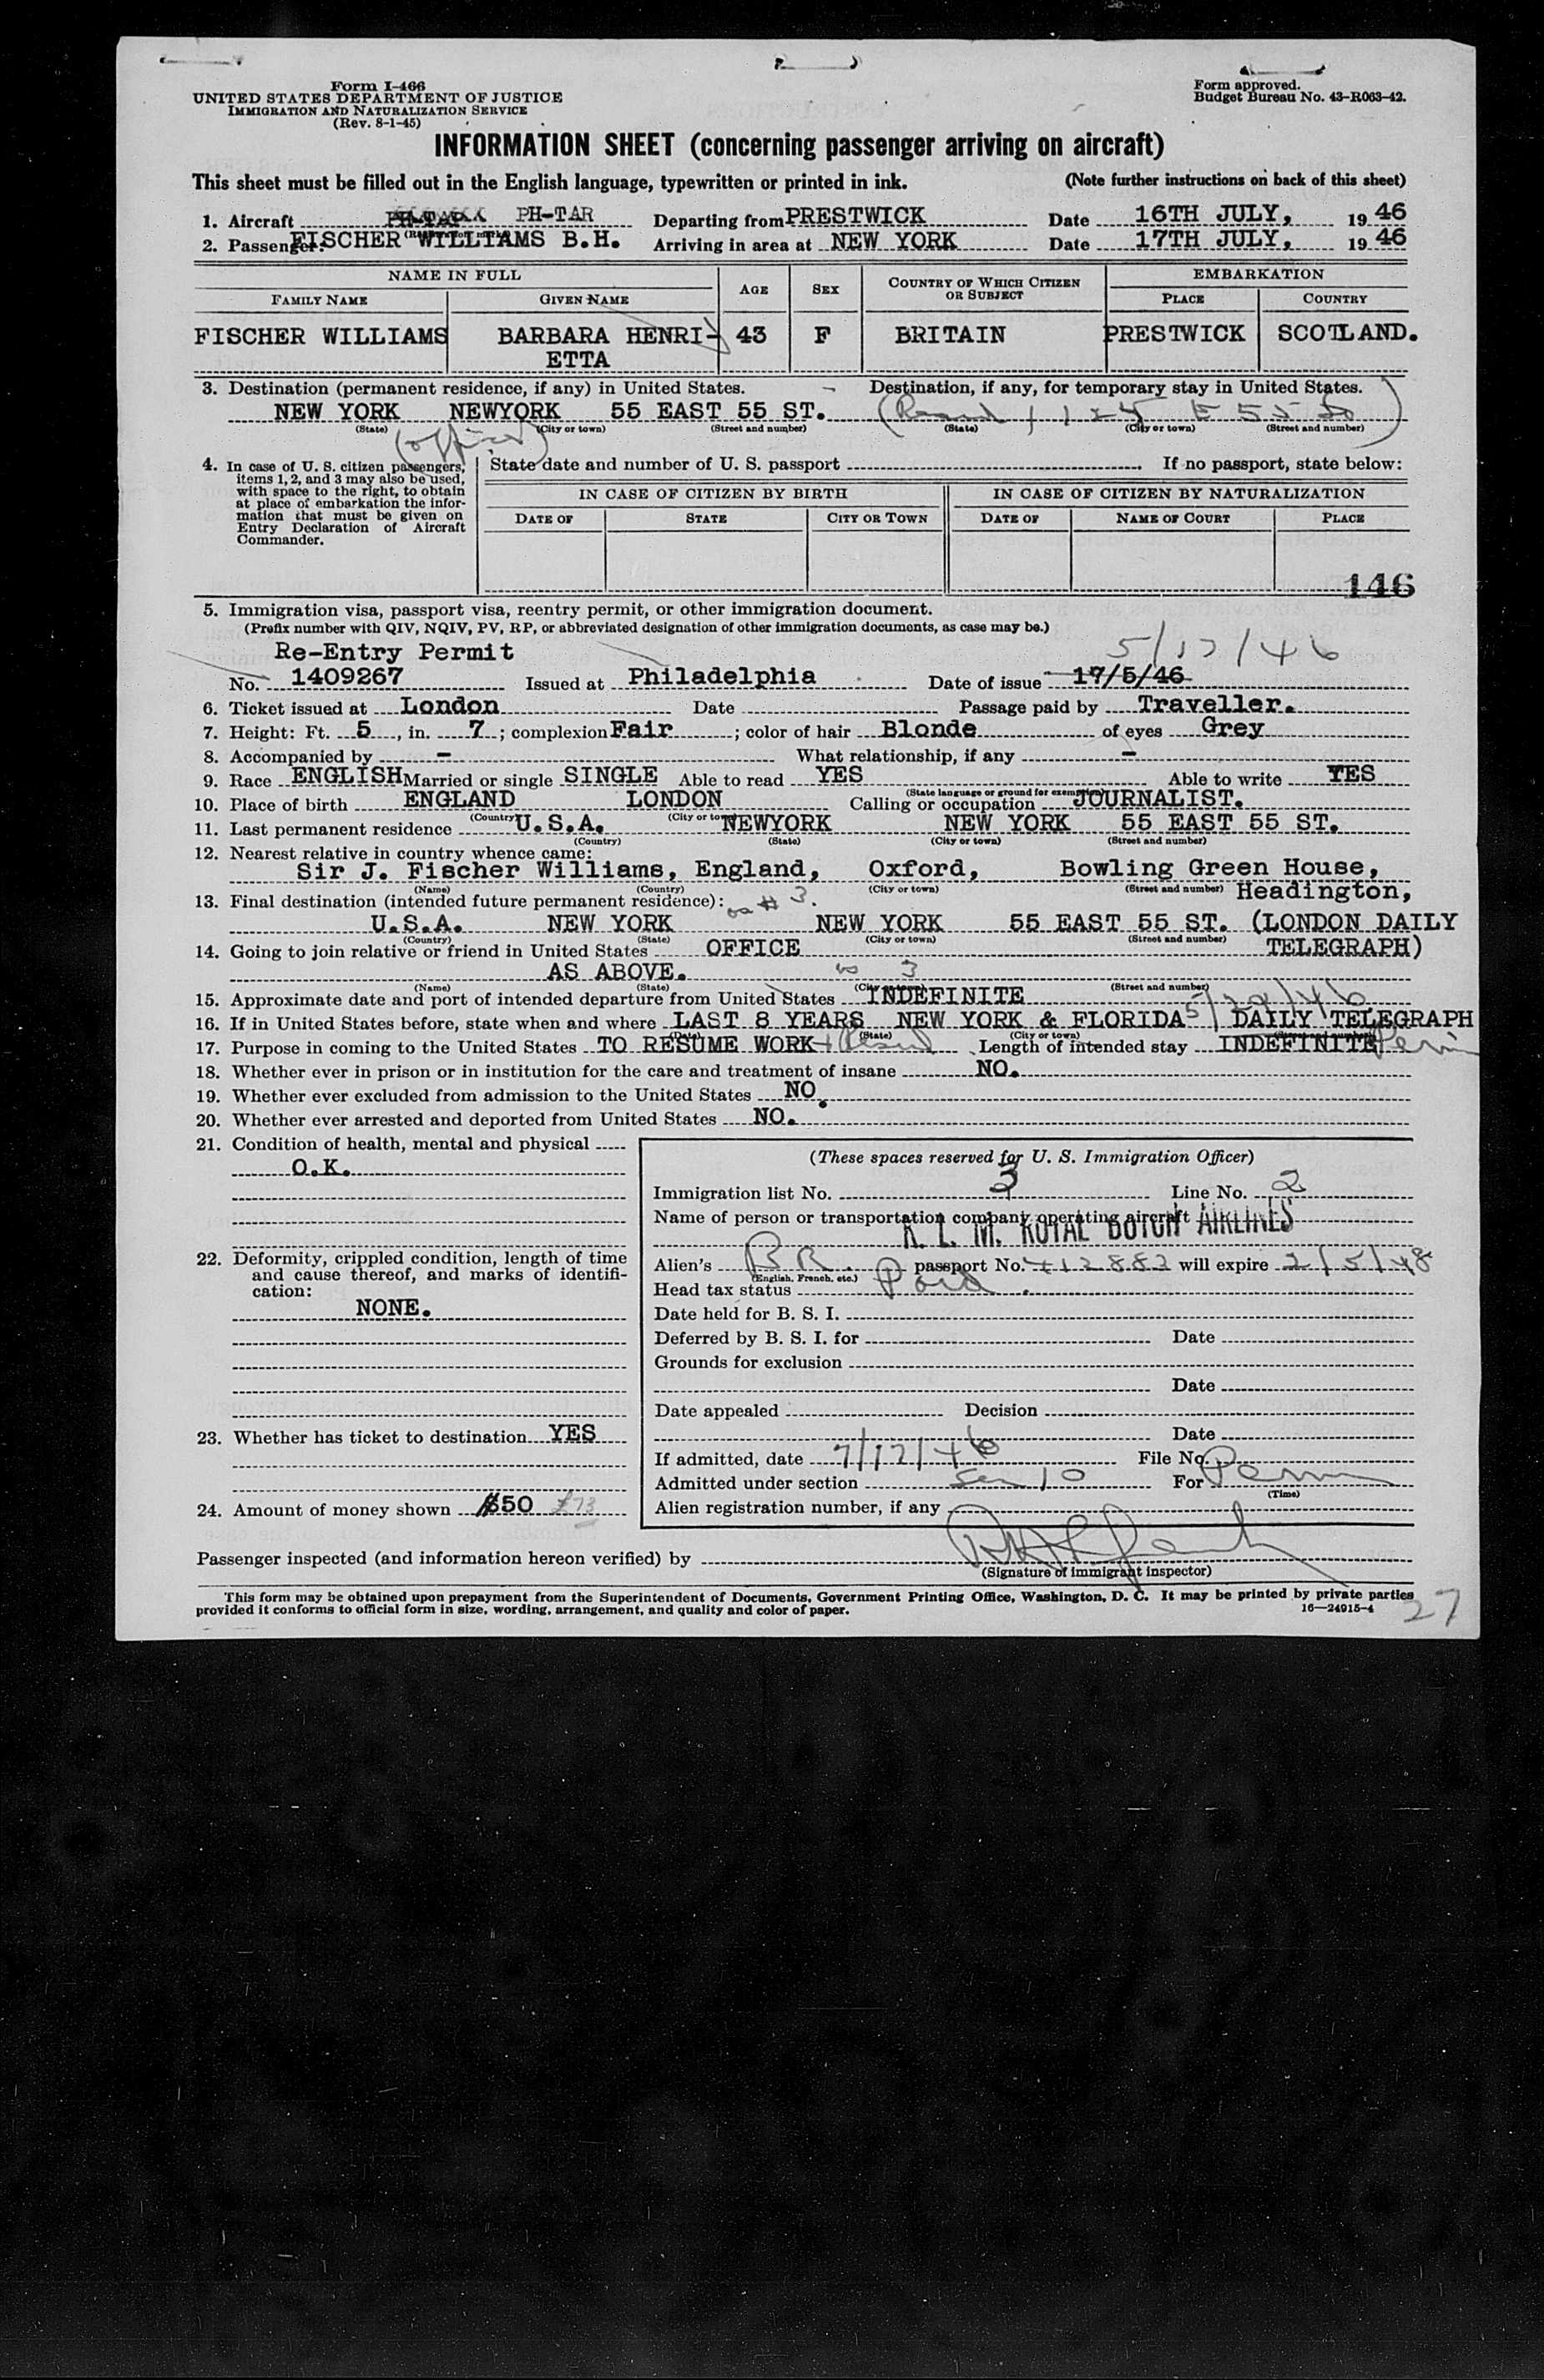 Form I-466
UNITED STATES DEPARTMENT OF JUSTICE
IMMIGRATION AND NATURALIZATION SERVICE
(Rev. 8-1-45)
Form approved.
Budget Bureau No. 43-R063-42.
INFORMATION SHEET (concerning passenger arriving on aircraft)
This sheet must be filled out in the English language, typewritten or printed in ink. (Note further instructions on back of this sheet)
1. Aircraft PH-TAR PH-TAR Departing from PRESTWICK Date 16TH JULY, 1946
2. Passenger: FISCHER WILLIAMS B.H. Arriving in area at NEW YORK Date 17TH JULY, 1946
NAME IN FULL AGE SEX COUNTRY OF WHICH CITIZEN OR SUBJECT EMBARKATION
FAMILY NAME GIVEN NAME PLACE COUNTRY
FISCHER WILLIAMS BARBARA HENRI- 43 F BRITAIN PRESTWICK SCOTLAND.
ETTA
3. Destination (permanent residence, if any) in United States. Destination, if any, for temporary stay in United States.
NEW YORK NEWYORK 55 EAST 55 ST.
(State) (City or town) (Street and number) (State) (City or town) (Street and number)
(office)
4. In case of U. S. citizen passengers, items 1, 2, and 3 may also be used, with space to the right, to obtain at place of embarkation the information that must be given on Entry Declaration of Aircraft Commander.
State date and number of U. S. passport If no passport, state below:
IN CASE OF CITIZEN BY BIRTH IN CASE OF CITIZEN BY NATURALIZATION
DATE OF STATE CITY OR TOWN DATE OF NAME OF COURT PLACE
146
5. Immigration visa, passport visa, reentry permit, or other immigration document.
(Prefix number with QIV, NQIV, PV, RP, or abbreviated designation of other immigration documents, as case may be.)
5/17/46
Re-Entry Permit
No. 1409267 Issued at Philadelphia Date of issue 17/5/46
6. Ticket issued at London Date Passage paid by Traveller.
7. Height: Ft. 5, in. 7; complexion Fair; color of hair Blonde of eyes Grey
8. Accompanied by - What relationship, if any -
9. Race ENGLISH Married or single SINGLE Able to read YES Able to write YES
(State language or ground for exemption)
10. Place of birth ENGLAND LONDON Calling or occupation JOURNALIST.
(Country) (City or town)
11. Last permanent residence U.S.A. NEWYORK NEW YORK 55 EAST 55 ST.
(Country) (State) (City or town) (Street and number)
12. Nearest relative in country whence came:
Sir J. Fischer Williams, England, Oxford, Bowling Green House,
(Name) (Country) (City or town) (Street and number) Headington,
13. Final destination (intended future permanent residence): as # 3.
U.S.A. NEW YORK NEW YORK 55 EAST 55 ST. (LONDON DAILY
(Country) (State) (City or town) (Street and number)
14. Going to join relative or friend in United States OFFICE TELEGRAPH)
AS ABOVE. as 3
(Name) (State) (City or town) (Street and number)
15. Approximate date and port of intended departure from United States INDEFINITE
16. If in United States before, state when and where LAST 8 YEARS NEW YORK & FLORIDA DAILY TELEGRAPH
(State) (City or town)
17. Purpose in coming to the United States TO RESUME WORK Length of intended stay INDEFINITE
18. Whether ever in prison or in institution for the care and treatment of insane NO.
19. Whether ever excluded from admission to the United States NO.
20. Whether ever arrested and deported from United States NO.
21. Condition of health, mental and physical
O.K.
22. Deformity, crippled condition, length of time and cause thereof, and marks of identification:
NONE.
23. Whether has ticket to destination YES
24. Amount of money shown $50
(These spaces reserved for U. S. Immigration Officer)
Immigration list No. 3 Line No. 2
Name of person or transportation company operating aircraft
K. L. M. ROYAL DUTCH AIRLINES
Alien's BR. passport No. 412882 will expire 2/5/48
(English, French, etc.)
Head tax status Paid
Date held for B. S. I.
Deferred by B. S. I. for Date
Grounds for exclusion
Date
Date appealed Decision
Date
If admitted, date 7/17/46 File No.
Admitted under section Sec 10 For Perm
(Time)
Alien registration number, if any
Passenger inspected (and information hereon verified) by
(Signature of immigrant inspector)
This form may be obtained upon prepayment from the Superintendent of Documents, Government Printing Office, Washington, D. C. It may be printed by private parties
provided it conforms to official form in size, wording, arrangement, and quality and color of paper. 16—24915-4
27